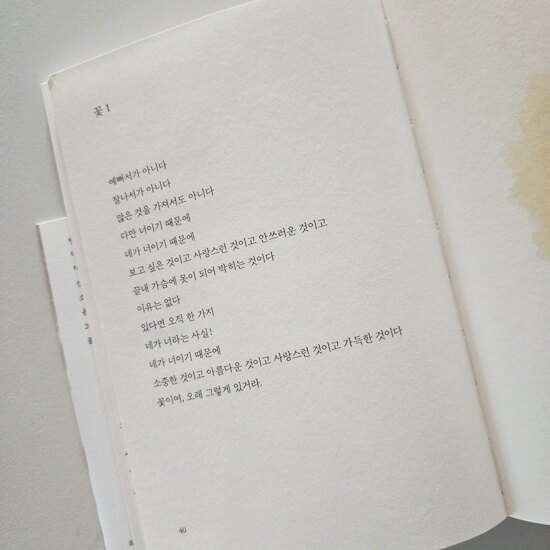 꽃 1
예뻐서가 아니다
잘나서가 아니다
많은 것을 가져서도 아니다
다만 너이기 때문에
네가 너이기 때문에
보고 싶은 것이고 사랑스런 것이고 안쓰러운 것이고
끝내 가슴에 못이 되어 박히는 것이다
이유는 없다
있다면 오직 한 가지
네가 너라는 사실!
네가 너이기 때문에
소중한 것이고 아름다운 것이고 사랑스런 것이고 가득한 것이다
꽃이여, 오래 그렇게 있거라.
40